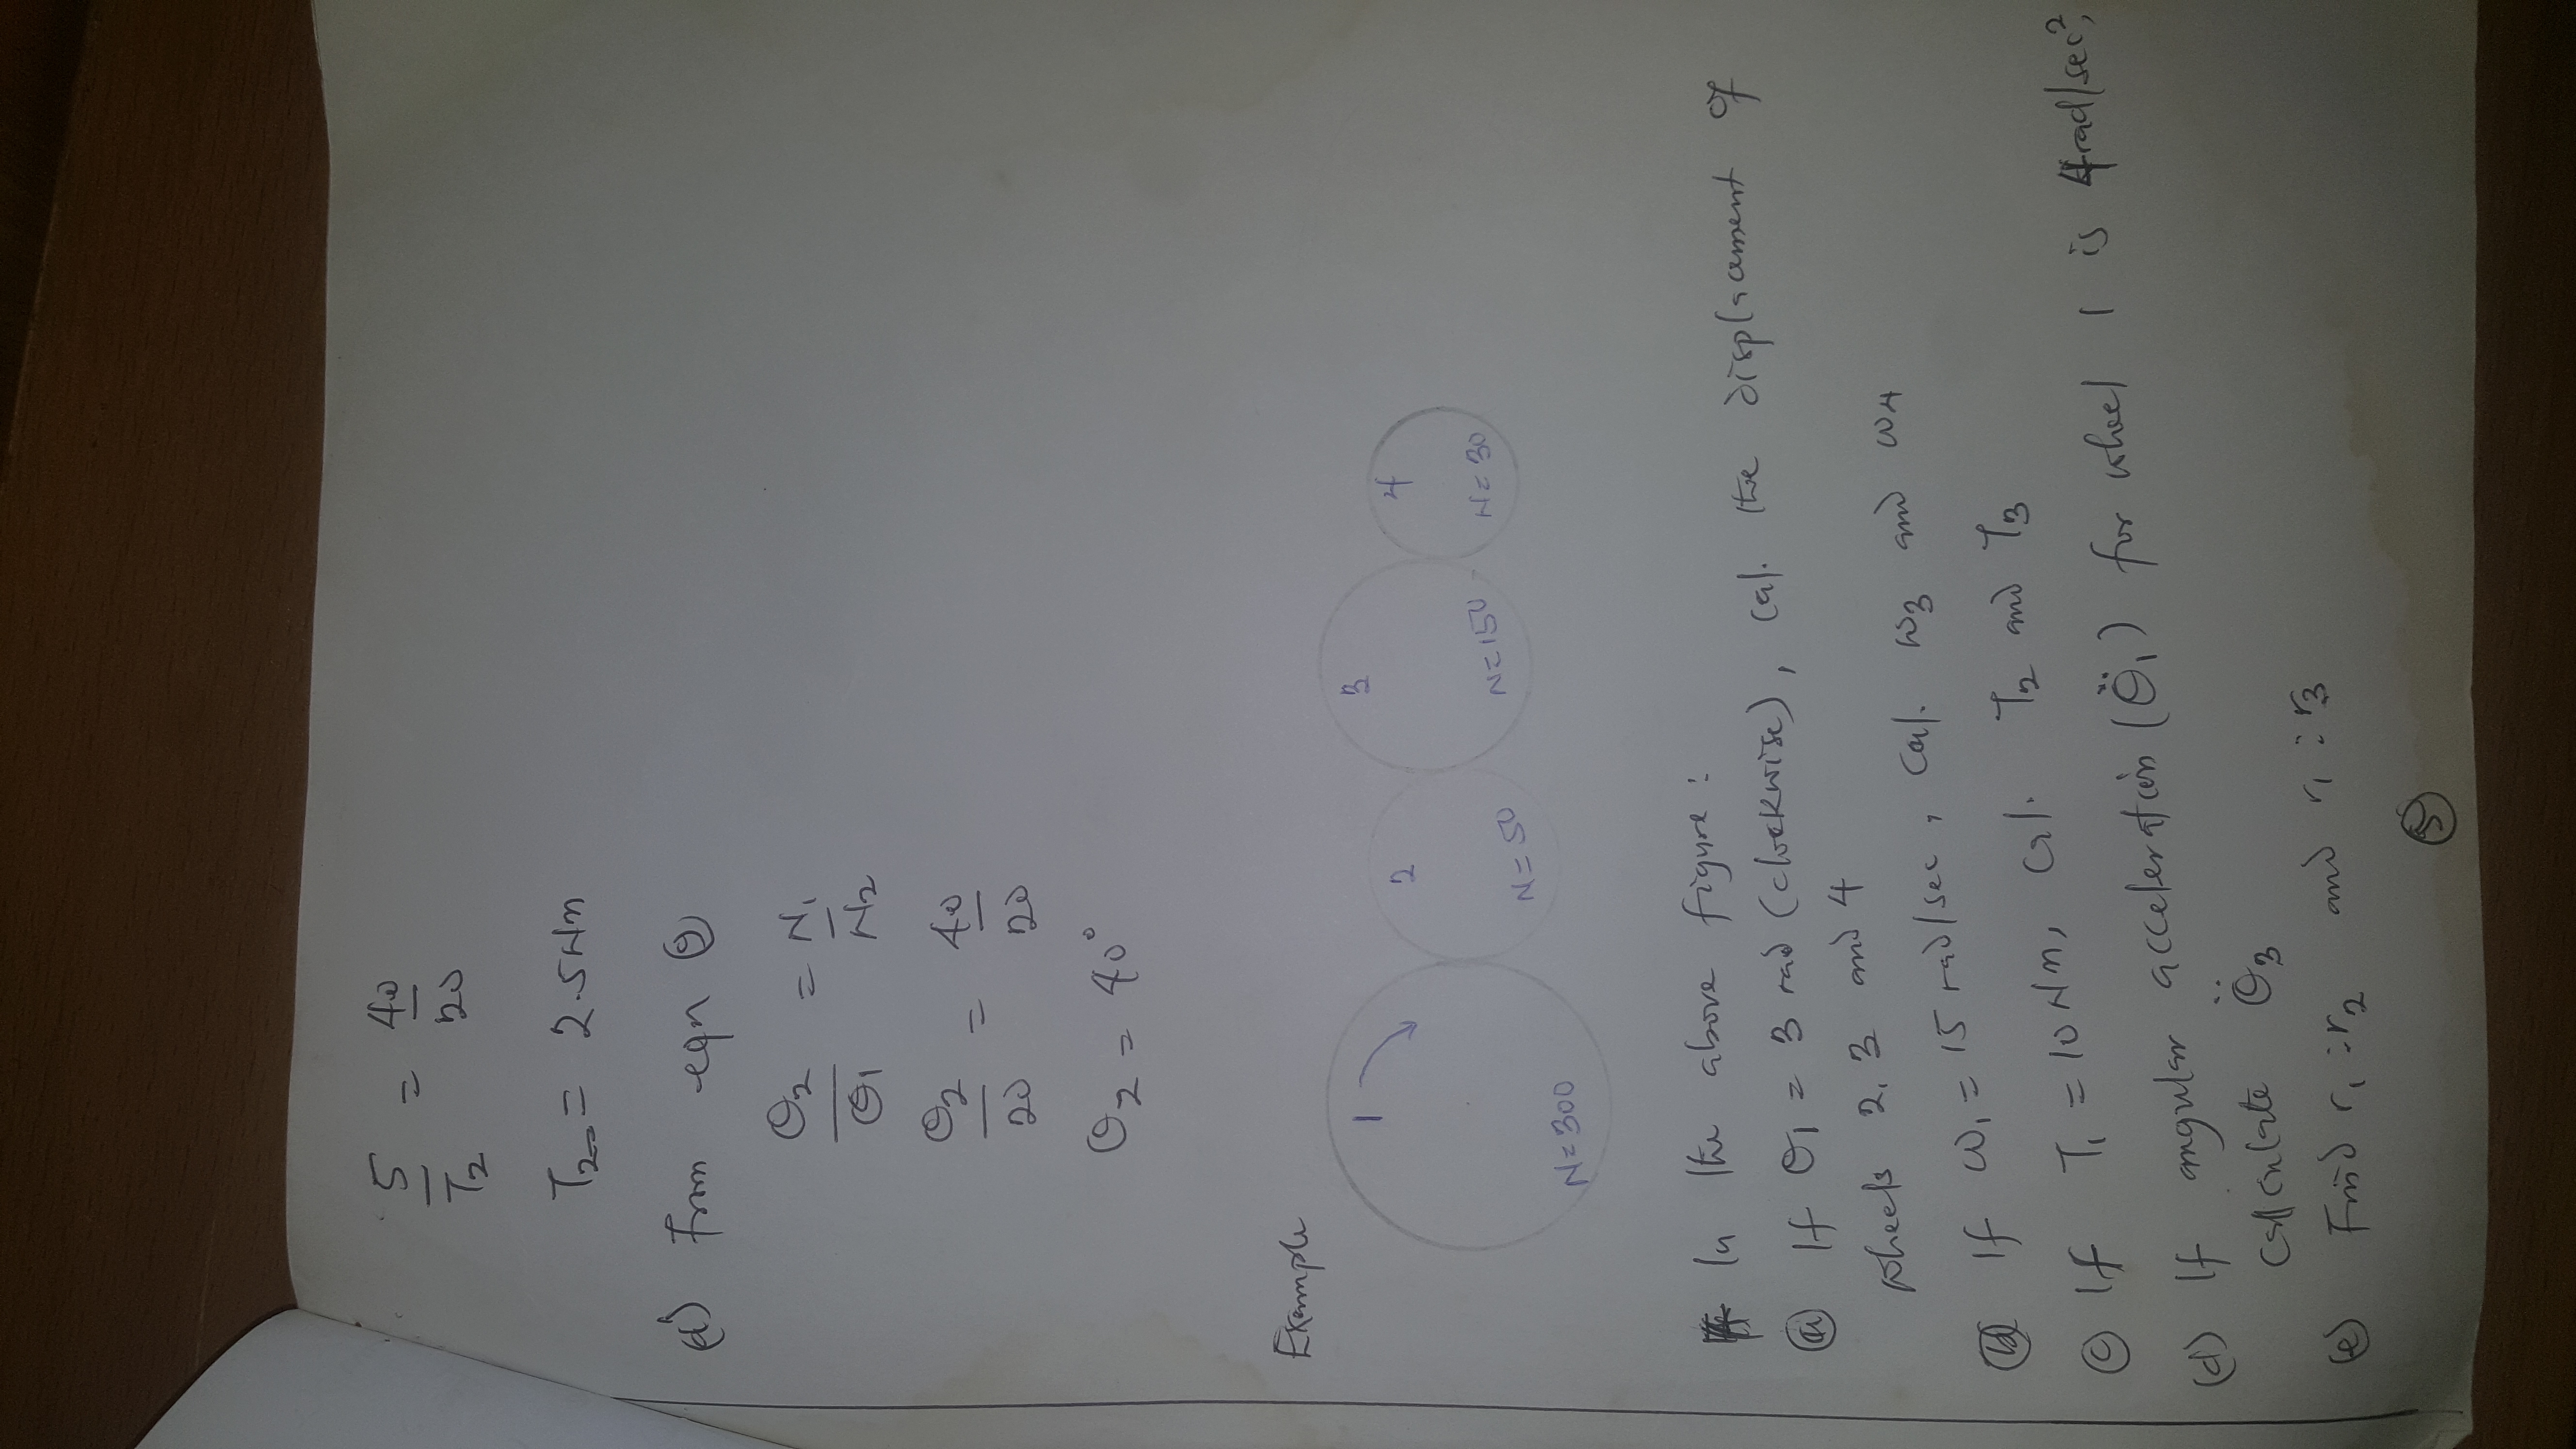 5/T₂ = 40/20
T₂ = 2.5Nm
(d) From eqn ②
θ₂/θ₁ = N₁/N₂
θ₂/20 = 40/20
θ₂ = 40°
Example
1 2 3 4
N=300 N=50 N=150 N=30
In the above figure:
(a) If θ₁ = 3 rad (clockwise), cal. the displacement of
wheels 2, 3 and 4
(b) If ω₁ = 15 rad/sec, cal. ω3 and ω4
(c) If T₁ = 10Nm, cal. T₂ and T₃
(d) If angular acceleration (θ̈₁) for wheel 1 is 4rad/sec²,
calculate θ̈₃
(e) Find r₁:r₂ and r₁:r₃
5